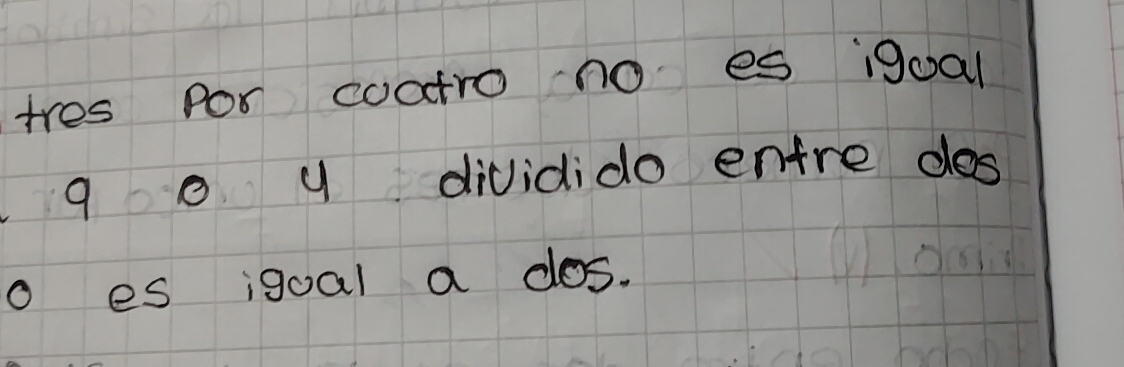 tres por cuatro no es igual
9 o 4 dividido entre dos
o es igual a dos.